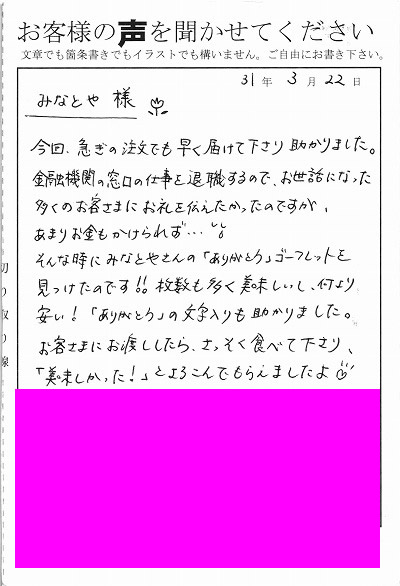 お客様の声を聞かせてください
文章でも箇条書きでもイラストでも構いません。ご自由にお書き下さい。
31年 3月 22日
みなとや 様
今回、急ぎの注文でも早く届けて下さり助かりました。
金融機関の窓口の仕事を退職するので、お世話になった
多くのお客さまにお礼を伝えたかったのですが、
あまりお金もかけられず…
そんな時にみなとやさんの「ありがとう」ゴーフレットを
見つけたのです!!枚数も多く美味しいし、何より
安い!「ありがとう」の文字入りも助かりました。
お客さまにお渡ししたら、さっそく食べて下さり、
「美味しかった!」とよろこんでもらえましたよ
切り取り線